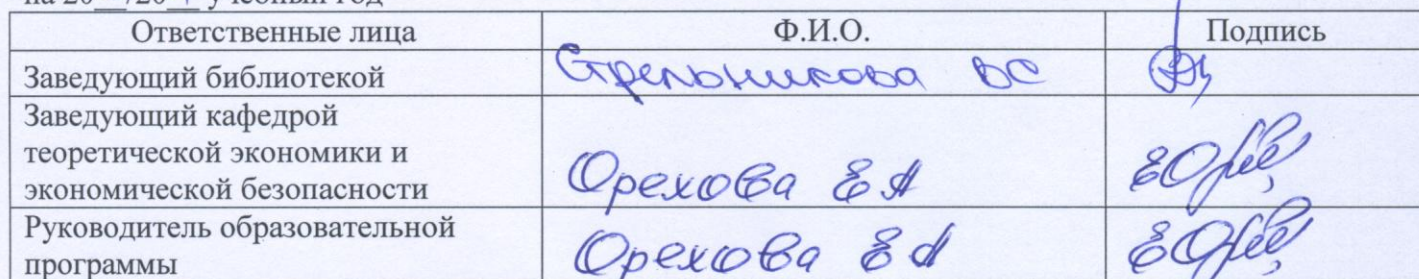 на 20__/20__ учебный год
Ответственные лица Ф.И.О. Подпись
Заведующий библиотекой Стрельникова ВС
Заведующий кафедрой
теоретической экономики и
экономической безопасности Орехова ЕА
Руководитель образовательной
программы Орехова ЕА